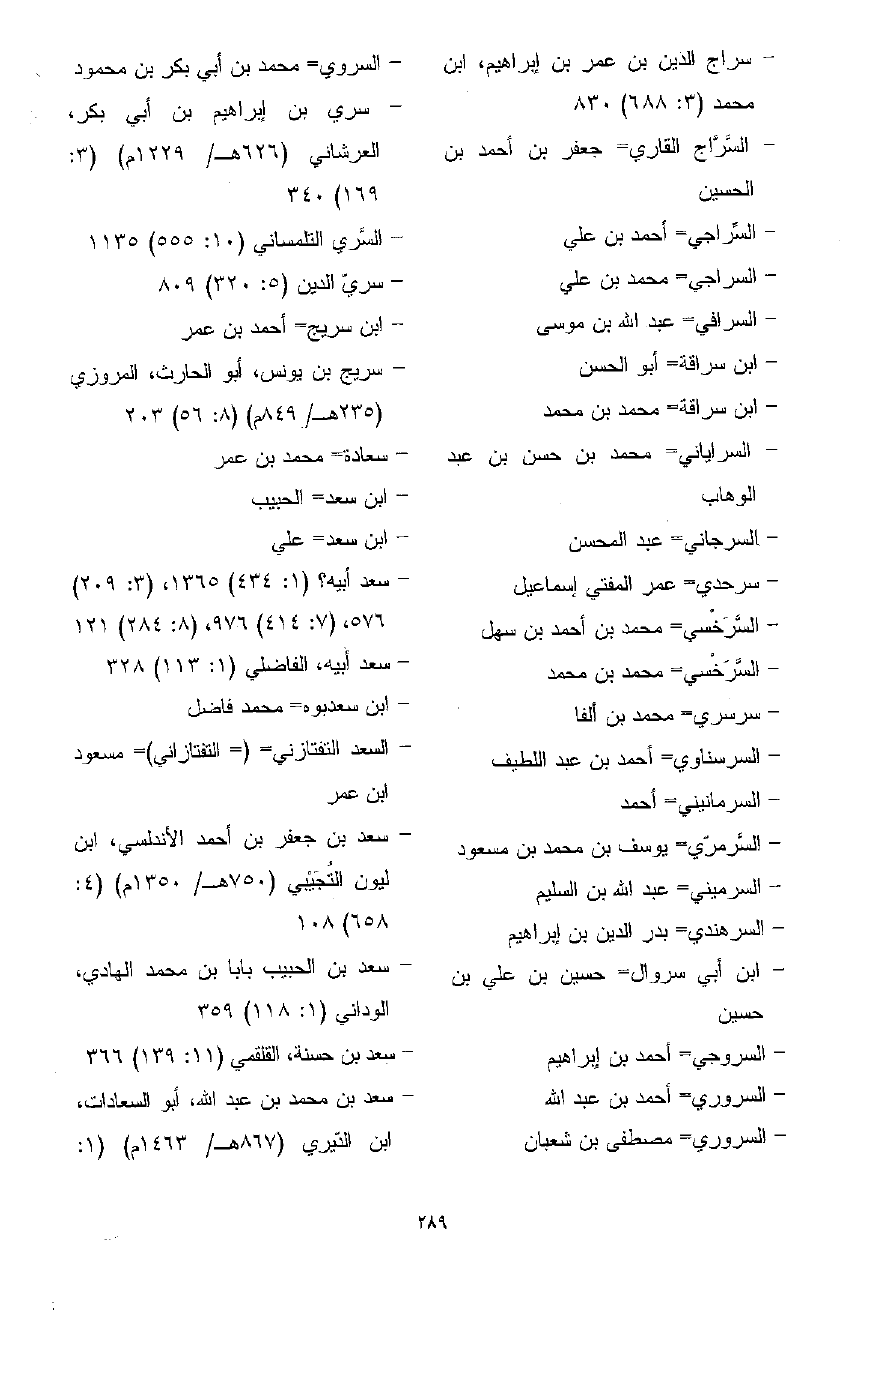 - سراج الدين بن عمر بن إبراهيم، ابن
محمد (٣: ٦٨٨) ٨٣٠
- السَّرَّاج القاري= جعفر بن أحمد بن
الحسين
- السِّراجي= أحمد بن علي
- السراجي= محمد بن علي
- السرافي= عبد الله بن موسى
- ابن سراقة= أبو الحسن
- ابن سراقة= محمد بن محمد
- السراياني= محمد بن حسن بن عبد
الوهاب
- السرجاني= عبد المحسن
- سرحدي= عمر المفتي إسماعيل
- السَّرَخْسي= محمد بن أحمد بن سهل
- السَّرَخْسي= محمد بن محمد
- سرسري= محمد بن ألفا
- السرسناوي= أحمد بن عبد اللطيف
- السرمانيني= أحمد
- السَّرمرّي= يوسف بن محمد بن مسعود
- السرميني= عبد الله بن السليم
- السرهندي= بدر الدين بن إبراهيم
- ابن أبي سروال= حسين بن علي بن
حسين
- السروجي= أحمد بن إبراهيم
- السروري= أحمد بن عبد الله
- السروري= مصطفى بن شعبان
- السروي= محمد بن أبي بكر بن محمود
- سري بن إبراهيم بن أبي بكر،
العرشاني (٦٢٦هـ/ ١٢٢٩م) (٣:
١٦٩) ٣٤٠
- السَّري التلمساني (١٠: ٥٥٥) ١١٣٥
- سريّ الدين (٥: ٣٢٠) ٨٠٩
- ابن سريج= أحمد بن عمر
- سريج بن يونس، أبو الحارث، المروزي
(٢٣٥هـ/ ٨٤٩م) (٨: ٥٦) ٢٠٣
- سعادة= محمد بن عمر
- ابن سعد= الحبيب
- ابن سعد= علي
- سعد أبيه؟ (١: ٤٣٤) ١٣٦٥، (٣: ٢٠٩)
٥٧٦، (٧: ٤١٤) ٩٧٦، (٨: ٢٨٤) ١٢١
- سعد أبيه، الفاضلي (١: ١١٣) ٣٢٨
- ابن سعدبوه= محمد فاضل
- السعد التفتازني= (= التفتازاني)= مسعود
ابن عمر
- سعد بن جعفر بن أحمد الأندلسي، ابن
ليون التُجَيْبي (٧٥٠هـ/ ١٣٥٠م) (٤:
٦٥٨) ١٠٨
- سعد بن الحبيب بابا بن محمد الهادي،
الوداني (١: ١١٨) ٣٥٩
- سعد بن حسنة، القلقمي (١١: ١٣٩) ٣٦٦
- سعد بن محمد بن عبد الله، أبو السعادات،
ابن التّيري (٨٦٧هـ/ ١٤٦٣م) (١:
٢٨٩